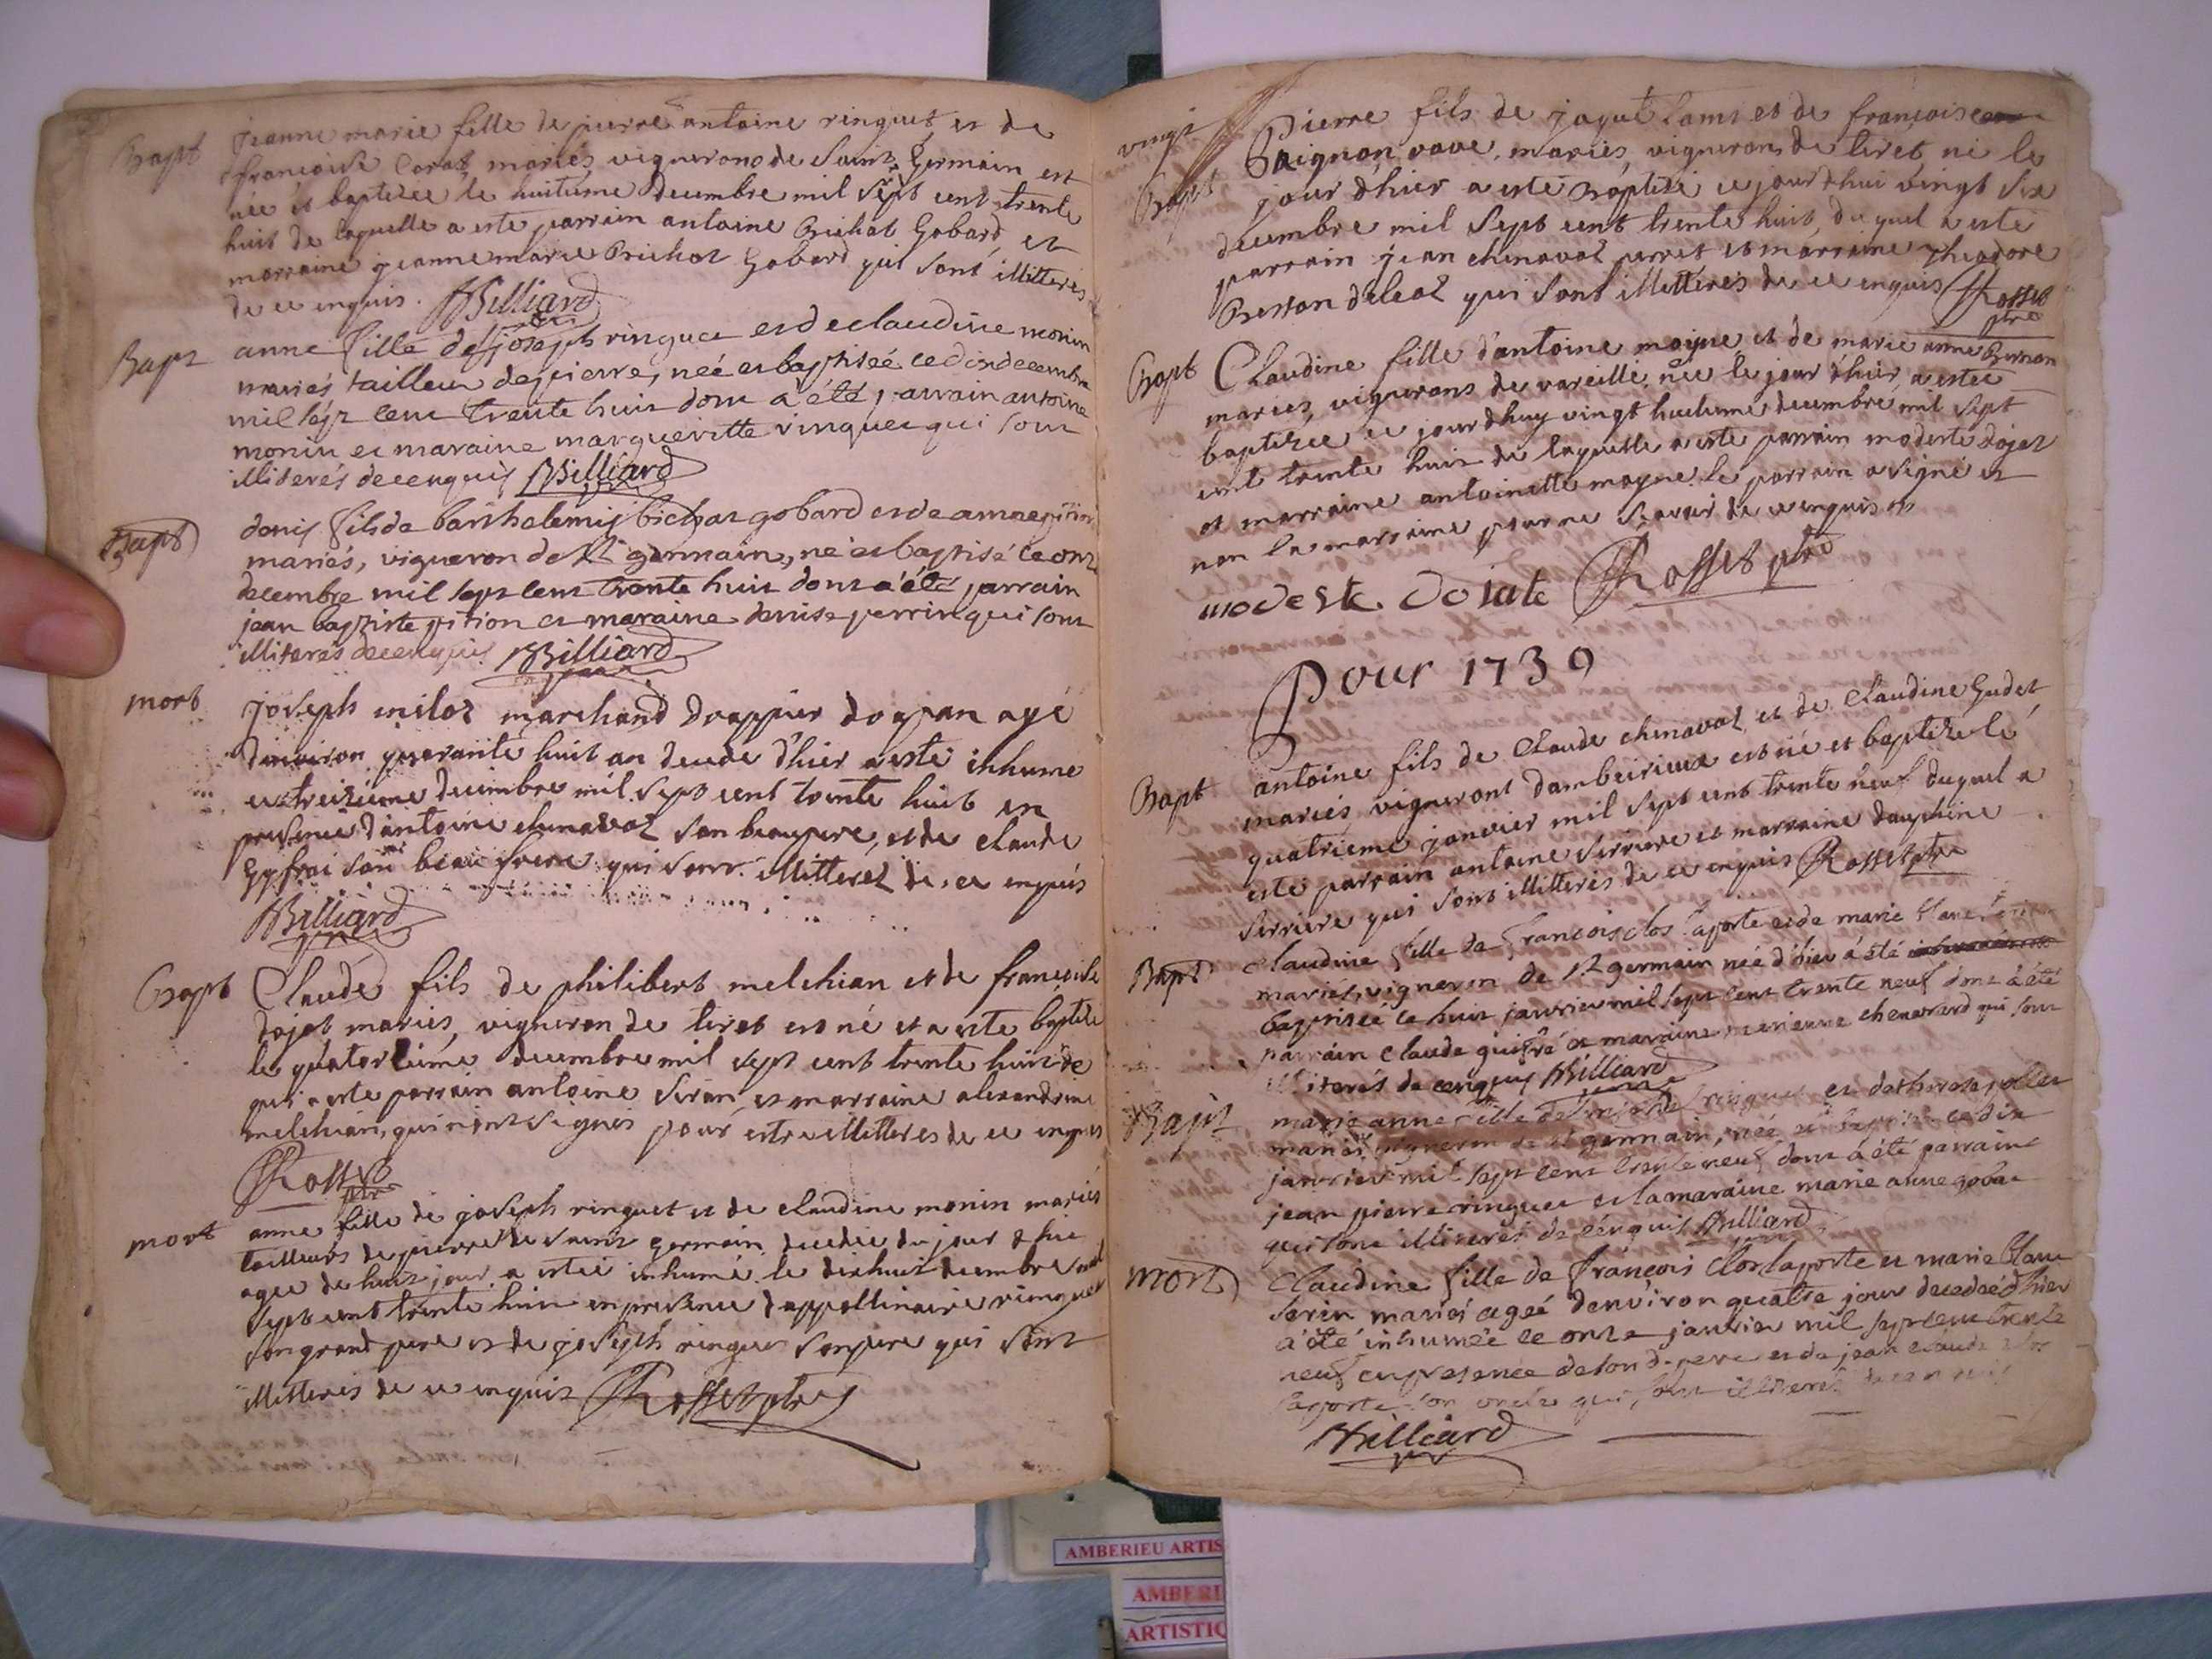 Bapt
jeanne marie fille de pierre antoine ringuet et de
francoise Corat mariés vignerons de Saint Germain est
née et baptizée le huitieme decembre mil Sept cent trente
huit de laquelle a esté parrain antoine Brichot Gobard et
marraine jeanne marie Brichot Gobard qui sont illitterés
de ce enquis. Billiard
Bapt
anne fille de joseph ringuet et de claudine monin
mariés tailleur de pierre, née et baptisée ce dix decembre
mil sept cent trente huit dont a été parrain antoine
monin et maraine margueritte ringuet qui sont
illiterés de ce enquis Billiard
Bapt
denis fils de barthelemy bichat gobard et de anne pition
mariés, vigneron de st germain, né et baptisé ce onze
decembre mil sept cent trente huit dont a été parrain
jean baptiste pition et maraine denise perrin qui sont
illiterés de ce enquis Billiard
mort
joseph miloz marchand drappier agé
d'environ quarante huit an decede d'hier a esté inhumé
ce treizieme decembre mil Sept cent trente huit en
presence d'antoine chenavaz son beaupere, et de claude
son beau frere qui sont illitterez de ce enquis
Billiard
Bapt
Claude fils de philibert melchian et de francoise
dojat mariés, vigneron de tiret est né et a esté baptizé
le quatorzieme decembre mil sept cent trente huit de
qui a esté parrain antoine Siran et marraine alexandrine
melchian, qui n'ont Signés pour estre illitterés de ce enquis
Rosset
ptre
mort
anne fille de joseph ringuet et de claudine monin mariés
tailleurs de pierre de Saint Germain decedée du jour d'hie
agee de huit jour a estée inhumé le dixhuit decembre
Sept cent trente huit en presence d'appollinaire ringuet
son grand pere et de joseph ringuet son pere qui sont
illitterés de ce enquis Rosset ptre
vingt
Bapt
Pierre fils de jaque lami et de francoise
mariés, vignerons de tiret né le
jour d'hier a esté Baptizé ce jourd'hui vingt six
decembre mil Sept cent trente huit, duquel a esté
parrain jean chenavaz perret et marraine Theodore
Besson qui sont illitterés de ce enquis Rosset
ptre
Bapt
Claudine fille d'antoine moyne et de marie anne
mariés, vignerons de vareille née le jour d'hier, a estée
baptizée ce jourdhuy vingt huitieme decembre mil Sept
cent trente huit de laquelle a esté parrain modeste dojat
et marraine antoinette moyne le parrain a signé et
non la marraine pour ne Scavoir de ce enquis
modeste doiate Rosset ptre
Pour 1739
Bapt
antoine fils de Claude chenavaz et de Claudine Gudet
mariés, vigneront d'ambeirieux est né et baptize le
quatrieme janvier mil Sept cent trente neuf duquel a
esté parrain antoine Serriere et marraine dauphine
Serriere qui sont illitterés de ce enquis Rosset ptre
Bapt
Claudine fille de francois clos laporte et de marie
mariés, vigneron de st germain née d'hier a été
baptisée ce huit janvier mil sept cent trente neuf dont a été
parrain claude guifré et maraine marienne chenavard qui sont
illiterés de cenquis Billiard
Bapt
marie anne fille de ringuet et de therese
mariés, vigneron de st germain, née et baptisée ce dix
janvier mil sept cent trente neuf dont a été parrain
jean pierre ringuet et la maraine marie anne
qui sont illiterés de cenquis Billiard
mort
Claudine fille de francois Clos laporte et marie
Serin mariés agée denviron quatre jour decedée d'hier
a été inhumée ce onze janvier mil sept cent trente
neuf en presence de son d. pere et de jean claude clos
laporte son oncle qui sont illiterés
Billiard
AMBERIEU ARTIS
AMBERI
ARTISTIQ